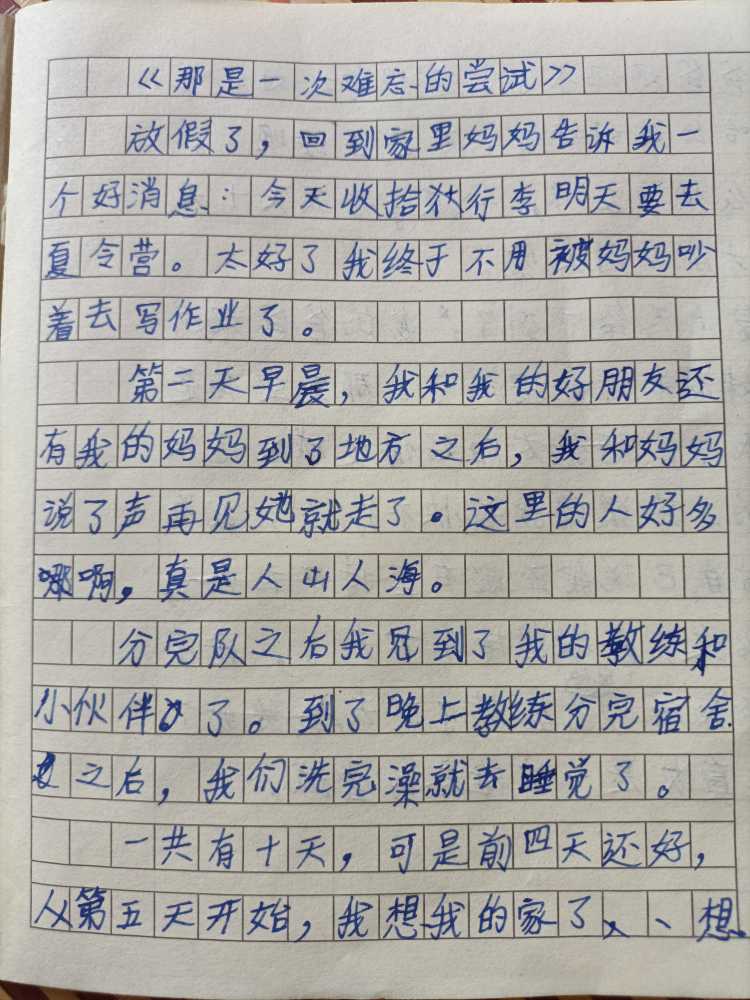 《那是一次难忘的尝试》
放假了，回到家里妈妈告诉我一
个好消息：今天收拾行李明天要去
夏令营。太好了我终于不用被妈妈吵
着去写作业了。
第二天早晨，我和我的好朋友还
有我的妈妈到了地方之后，我和妈妈
说了声再见她就走了。这里的人好多
哪啊，真是人山人海。
分完队之后我见到了我的教练和
小伙伴了。到了晚上教练分完宿舍
之后，我们洗完澡就去睡觉了。
一共有十天，可是前四天还好，
从第五天开始，我想我的家了、、想